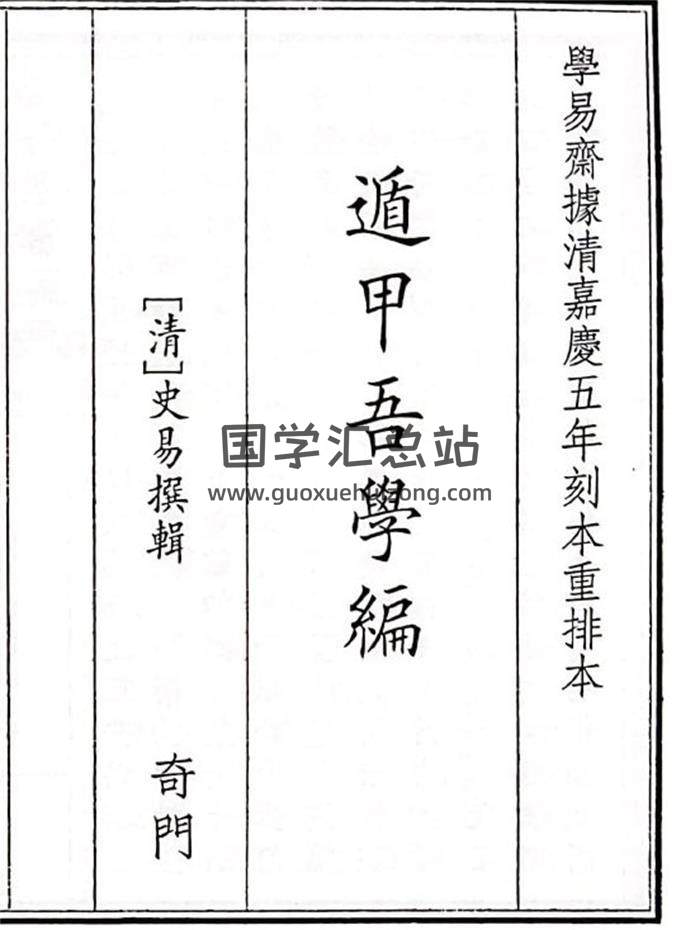 學易齋據清嘉慶五年刻本重排本
遁甲吾學編
[清]史易撰輯
奇門
国学汇总站
www.guoxuehuizong.com